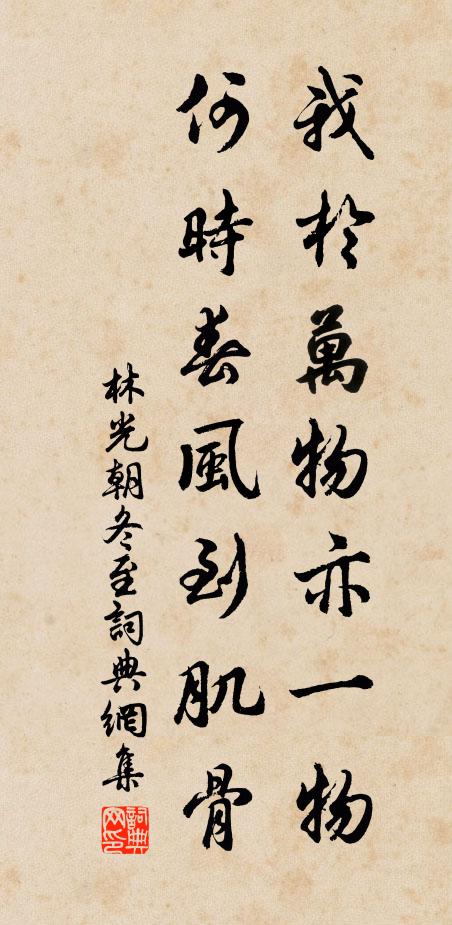 我於萬物亦一物
何時春風到肌骨
林光朝冬至詞典網集
詞典
网印